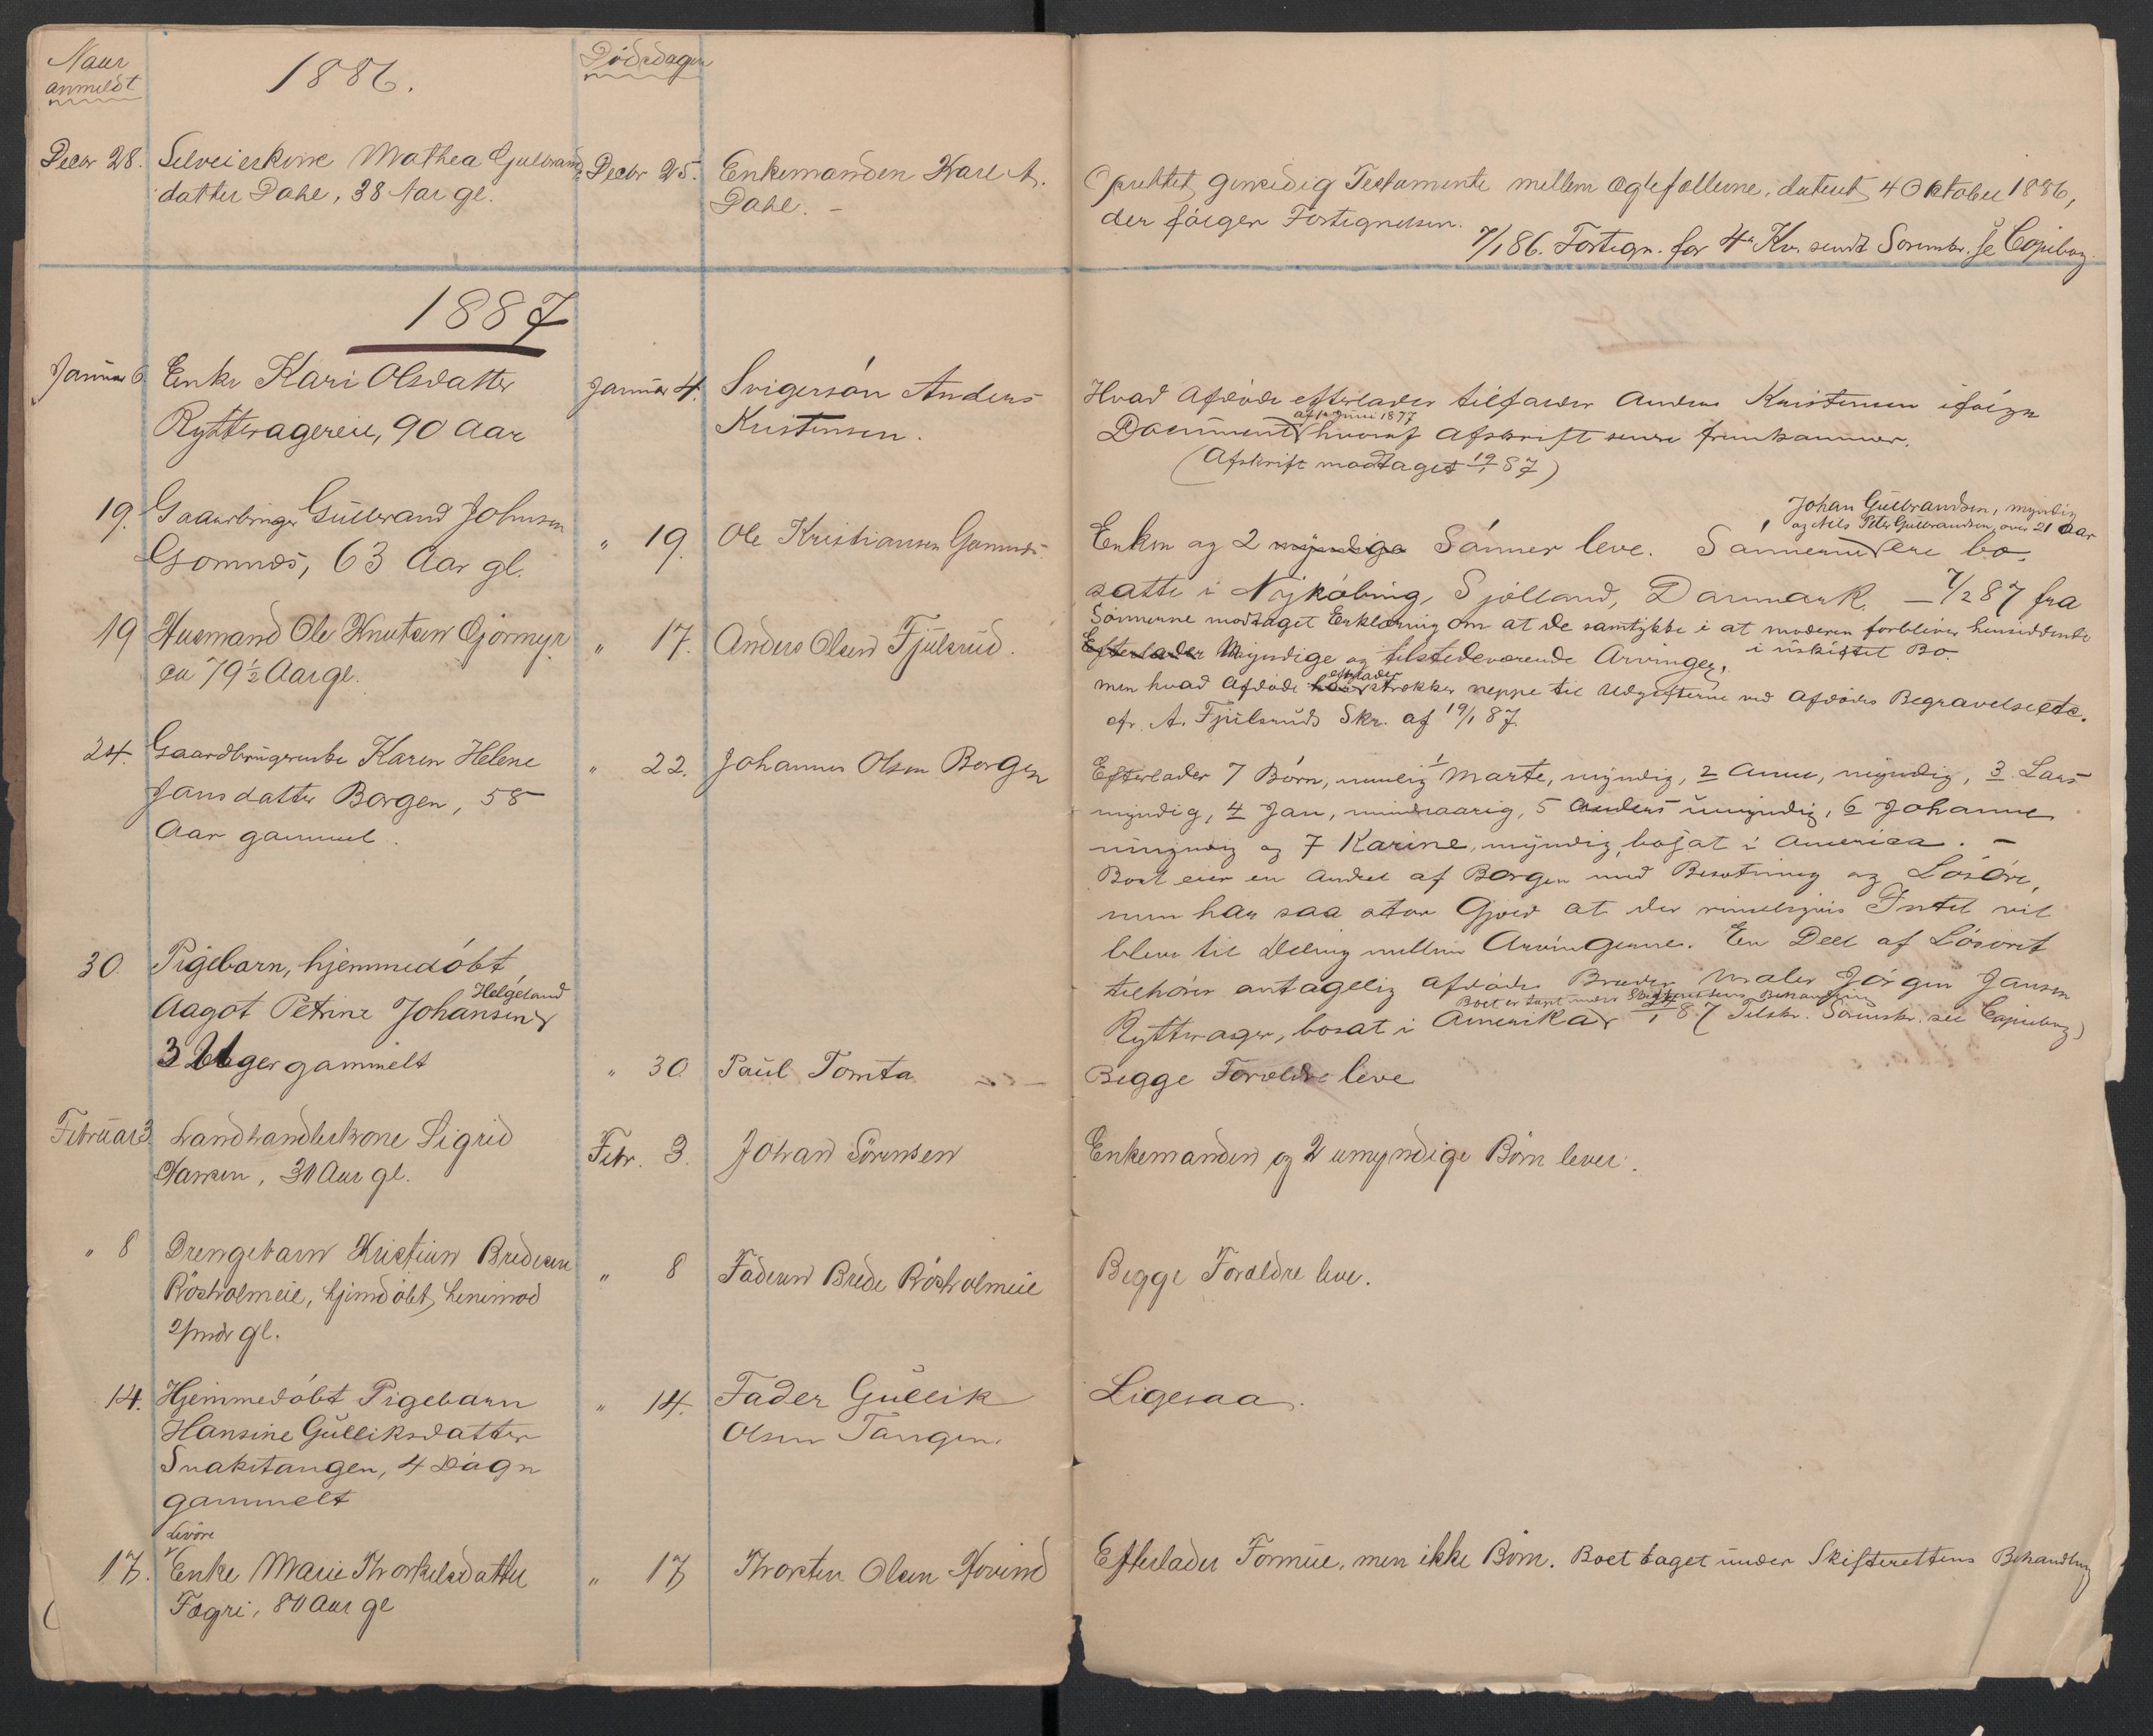 Naar
anmeldt
1886.
Dödsdagen
Decbr 28.
Selveierkone Mathea Gulbrands
datter Dahl, 38 Aar gl.
Decbr 25.
Enkemanden Karl A.
Dahl. -
Oprettet gensidig Testamente mellem Ægtefællerne, dateret 4 Oktober 1886,
der følger Fortegnelsen.
7/1 86. Fortegn. for 4de Kv. sendt Sorenskr. se Copibog.
1887
Januar 6.
Enke Kari Olsdatter
Rytteragereie, 90 Aar
Januar 4.
Svigersön Anders
Kristensen.
Hvad Afdöde efterlader tilfalder Anders Kristensen ifölge
af Juni 1877
Document hvoraf Afskrift senere fremkommer.
(Afskrift modtaget 19/1 87)
19.
Gaardbruger Gulbrand Johnsen
Gomnæs, 63 Aar gl.
" 19.
Ole Kristiansen Gomnæs
Johan Gulbrandsen, myndig
og Nils Peter Gulbrandsen, over 21 Aar
Enken og 2 myndige Sönner leve. Sönnerne ere bo-
satte i Nyköbing, Sjölland, Danmark. - 7/2 87 fra
Sönnerne modtaget Erklæring om at de samtykke i at moderen forbliver hensiddende
i uskiftet Bo.
19
Husmand Ole Knutsen Gjörmyr
ca 79 1/2 Aar gl.
" 17.
Anders Olsen Fjulsrud.
Efterlader Myndige og tilstedeværende Arvinger,
efterlader
men hvad Afdöde strækker neppe til Udgifterne ved Afdödes Begravelse etc.
cfr. A. Fjulsruds Skr. af 19/1 87.
24.
Gaardbrugerenke Karen Helene
Jansdatter Borgen, 58
Aar gammel.
" 22.
Johannes Olsen Borgen
Efterlader 7 Börn, nemlig 1 Marte, myndig, 2 Anne, myndig, 3. Lars
myndig, 4 Jan, mindreaarig, 5 Anders umyndig, 6 Johanne
umyndig og 7 Karine, myndig, bosat i America. -
Boet eier en Andel af Borgen med Besætning og Lösöre,
men har saa stor Gjæld at der rimeligvis Intet vil
blive til Deling mellem Arvingerne. En Deel af Lösöret
tilhörer antagelig afdödes Broder Maler Jörgen Jansen
Boet er tagt under Skifterettens Behandling
Rytterager, bosat i Amerika 24/1 87 Tilskr. Sorenskr. see Copibog)
30.
Pigebarn, hjemmedöbt,
Helgeland
Aagot Petrine Johansen
3 Uger gammelt
" 30
Paul Tomta
Begge Forældre leve
Februar 3.
Landhandlerkone Sigrid
Hansen, 30 Aar gl.
Febr. 3.
Johan Sörensen
Enkemanden og 2 umyndige Börn lever.
" 8
Drengebarn Kristian Bredesen
Rösholmeie, hjemdöbt, henimod
2 mdr gl.
" 8
Faderen Brede Rösholmeie
Begge Forældre leve.
14.
Hjemmedöbt Pigebarn
Hansine Gulliksdatter
Snakstangen, 4 Dögn
gammelt
" 14.
Fader Gullik
Olsen Tangen.
Ligesaa.
17.
Enke Marie Thorkelsdatter
Fagri, 80 Aar gl
" 17
Thorsten Olsen Hovind
Efterlader Formue, men ikke Börn. Boet taget under Skifterettens Behandling